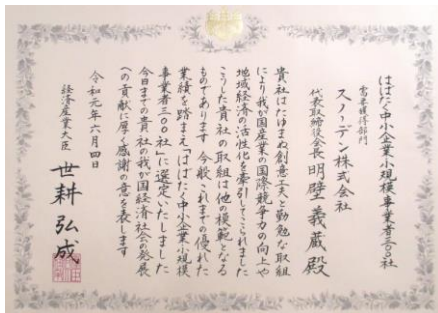 はばたく中小企業小規模事業者三〇〇社
需要獲得部門
スノーデン株式会社
代表取締役会長 明壁義蔵 殿
貴社はたゆまぬ創意工夫と勤勉な取組
により我が国産業の国際競争力の向上や
地域経済の活性化を牽引してこられました
こうした貴社の取組は他の模範となる
ものであります 今般これまでの優れた
業績を踏まえ「はばたく中小企業小規模
事業者三〇〇社」に選定いたしました
今日までの貴社の我が国経済社会の発展
への貢献に厚く感謝の意を表します
令和元年六月四日
経済産業大臣 世耕弘成